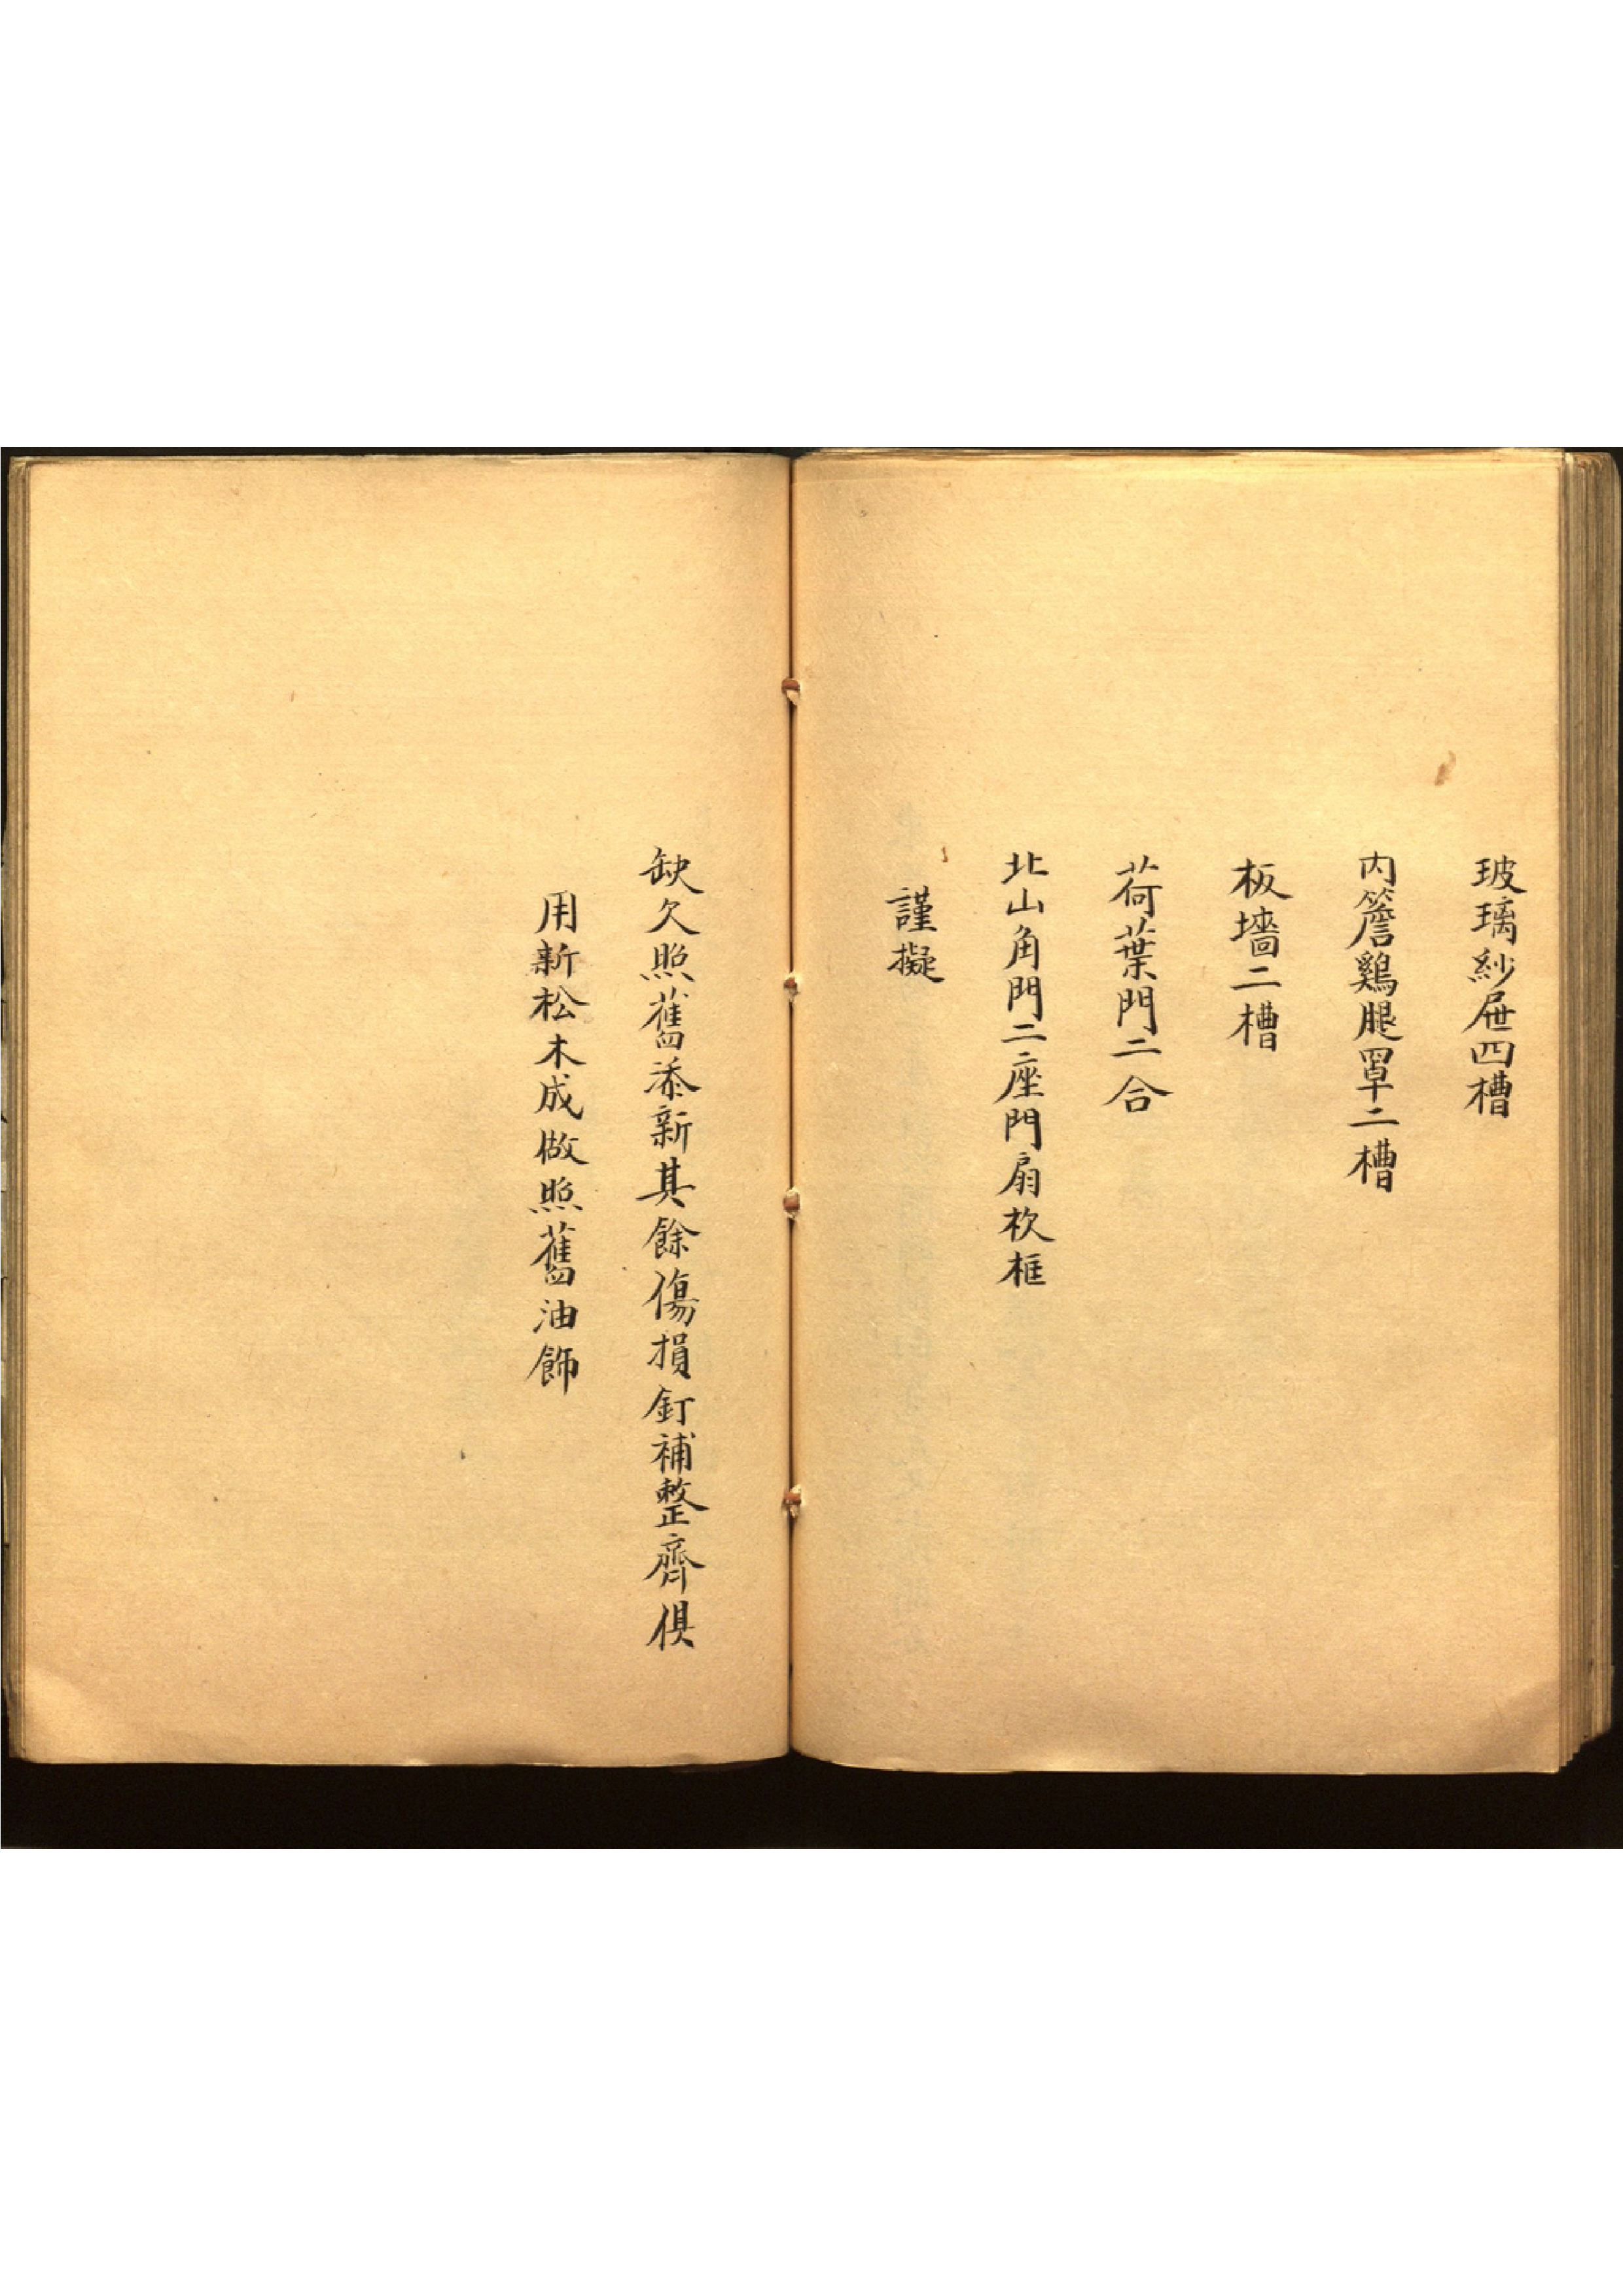 玻璃紗屉四槽
内簷鷄腿罩二槽
板墻二槽
荷葉門二合
北山角門二座門扇杴框
謹擬
缺欠照舊添新其餘傷損釘補整齊俱
用新松木成做照舊油飾